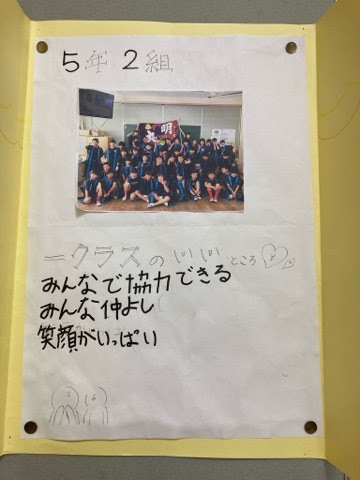 5年2組
明
=クラスのいいところ
みんなで協力できる
みんな仲よし
笑顔がいっぱい